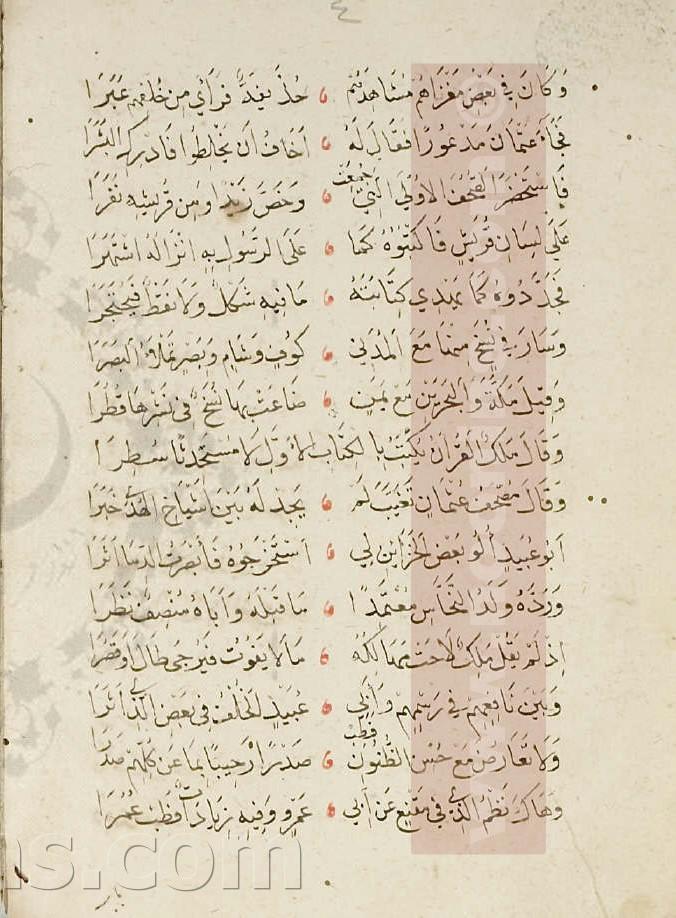 ٤
وَكَانَ فِي بَعْضِ مَغْزَاهُمْ مُشَاهِدَهُمْ حُذَيْفَةٌ فَرَأَى مِنْ خُلْفِهِمْ عَبَرَا
فَجَاءَ عُثْمَانَ مَذْعُورًا فَقَالَ لَهُ أَخَافُ أَنْ يَخْلِطُوا فَادْرِكِ الْبَشَرَا
فَاسْتَحْضَرَ الصُّحُفَ الْأُولَى الَّتِي جُمِعَتْ وَخَصَّ زَيْدًا وَمِنْ قُرَيْشِهِ نَفَرَا
عَلَى لِسَانِ قُرَيْشٍ فَاكْتُبُوهُ كَمَا عَلَى الرَّسُولِ بِهِ انْزَالُهُ اشْتَهَرَا
فَجَرَّدُوهُ كَمَا يَهْوَى كِتَابَتَهُ مَا فِيهِ شَكْلٌ وَلَا نَقْطٌ فَيَحْتَجِرَا
وَسَارَ فِي نُسَخٍ مِنْهَا مَعَ الْمَدَنِي كُوفٍ وَشَامٍ وَبَصْرٍ تَمْلَأُ الْبَصَرَا
وَقِيلَ مَكَّةَ وَالْبَحْرَيْنِ مَعْ يَمَنٍ ضَاعَتْ بِهَا نُسَخٌ فِي نَشْرِهَا قُطُرَا
وَقَالَ مَالِكٌ الْقُرْآنُ يُكْتَبُ بِالْكِتَابِ الْأَوَّلِ لَا مُسْتَحْدَثًا سُطِرَا
وَقَالَ مُصْحَفُ عُثْمَانٍ تَغَيَّبَ لَمْ يَجِدْ لَهُ بَيْنَ أَشْيَاخِ الْهُدَى خَبَرَا
أَبُو عُبَيْدٍ أُلُو بَعْضِ الْخَزَائِنِ لِي اسْتَخْرَجُوهُ فَأَبْصَرْتُ الدِّمَا أَثَرَا
وَرَدَّهُ وَلَدُ النَّحَّاسِ مُعْتَمِدًا مَا قَبْلَهُ وَأَبَاهُ مُنْصِفٌ نَظَرَا
إِذْ لَمْ يَقُلْ مَالِكٌ لَاحَتْ مَهَالِكُهُ مَا لَا يَفُوتُ فَيُرْجَى طَالَ أَوْ قَصُرَا
وَبَيْنَ نَافِعِهِمْ فِي رَسْمِهِمْ وَأَبِي عُبَيْدٍ الْخُلْفُ فِي بَعْضِ الَّذِي أَثَرَا
وَلَا تَعَارُضَ مَعْ حُسْنِ الظُّنُونِ فَطِبْ صَدْرًا رَحِيبًا بِمَا عَنْ كُلِّهِمْ صَدَرَا
وَهَاكَ نَظْمَ الَّذِي فِي مُقْنِعٍ عَنْ أَبِي عَمْرٍو وَفِيهِ زِيَادَاتٌ فَطِبْ عُمُرَا
باب